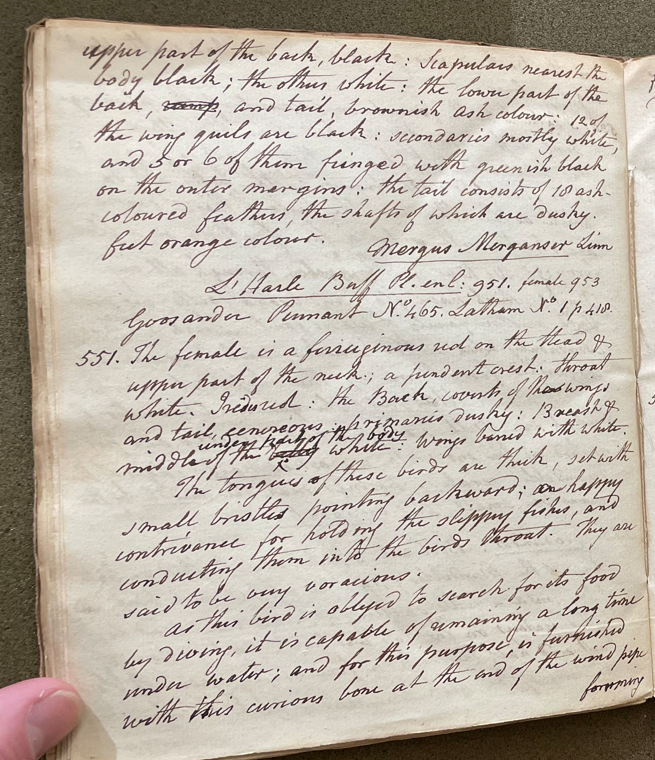 upper part of the back, black: Scapulars nearest the
body black; the others white: the lower part of the
back, rump, and tail, brownish ash colour: 12 of
the wing quils are black: secondaries mostly white,
and 5 or 6 of them fringed with greenish black
on the outer margins: the tail consists of 18 ash-
coloured feathers, the shafts of which are dusky.
feet orange colour. Mergus Merganser Linn
L'Harle Buff Pl. enl: 951. female 953
Goosander Pennant No. 465. Latham No. 1 p 418.
551. The female is a ferruginous red on the Head &
upper part of the neck; a pendent crest: throat
white. Irides red: the Back, coverts of the wings
and tail, cenereous: primaries dusky: Breast &
under part of the body
middle of the belly white: Wings bared with white.
The tongues of these birds are thick, set with
small bristles pointing backward; an happy
contrivance for holding the slippery fishes, and
conducting them into the birds throat. They are
said to be very voracious.
As this bird is obliged to search for its food
by diving, it is capable of remaining a long time
under water; and for this purpose, is furnished
with this curious bone at the end of the wind pipe
forming